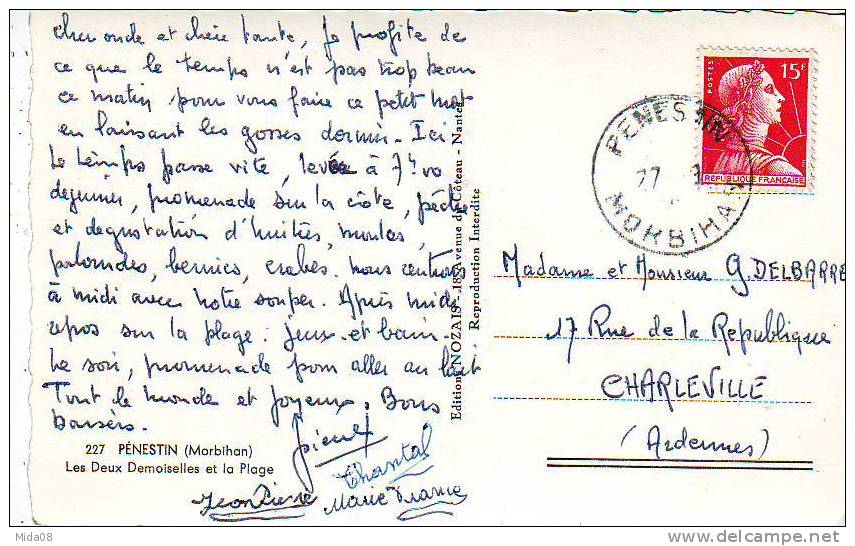 Cher oncle et chère tante, Je profite de
ce que le temps n'est pas trop beau
ce matin pour vous faire ce petit mot
en laissant les gosses dormir. Ici
Le temps passe vite, levée à 7h30
déjeuner, promenade sur la côte, pêche
et dégustation d'huîtres, moules,
palourdes, bernics, crabes. nous rentrons
à midi avec notre souper. Après midi
repos sur la plage : jeux et bain.
Le soir, promenade pour aller au lait
Tout le monde est joyeux. Bons
baisers.
Pierret
Chantal
Jean Pierre
Marie France
227 PÉNESTIN (Morbihan)
Les Deux Demoiselles et la Plage
Editions NOZAIS - 18, Avenue du Côteau - Nantes
Reproduction Interdite
PENESTIN
27
MORBIHAN
POSTES
15F
REPUBLIQUE FRANÇAISE
Madame et Monsieur G. DELBARRE
17 Rue de la Republique
CHARLEVILLE
(Ardennes)
© Mida08
delcampe.net